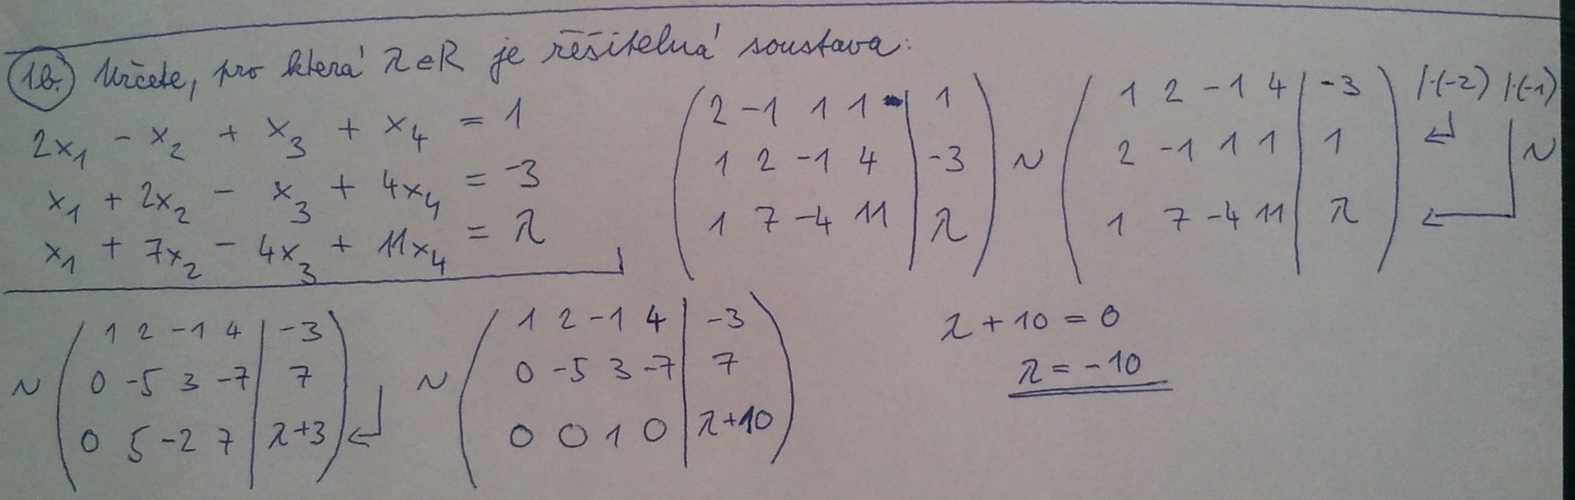 1b. Určete, pro která λ∈R je řešitelná soustava:
2x₁ - x₂ + x₃ + x₄ = 1
x₁ + 2x₂ - x₃ + 4x₄ = -3
x₁ + 7x₂ - 4x₃ + 11x₄ = λ
( 2 -1 1 1 | 1 )
( 1 2 -1 4 | -3 )
( 1 7 -4 11 | λ )
~
( 1 2 -1 4 | -3 ) |·(-2) |·(-1)
( 2 -1 1 1 | 1 ) ~
( 1 7 -4 11 | λ )
~
( 1 2 -1 4 | -3 )
( 0 -5 3 -7 | 7 )
( 0 5 -2 7 | λ+3 )
~
( 1 2 -1 4 | -3 )
( 0 -5 3 -7 | 7 )
( 0 0 1 0 | λ+10 )
λ + 10 = 0
λ = -10